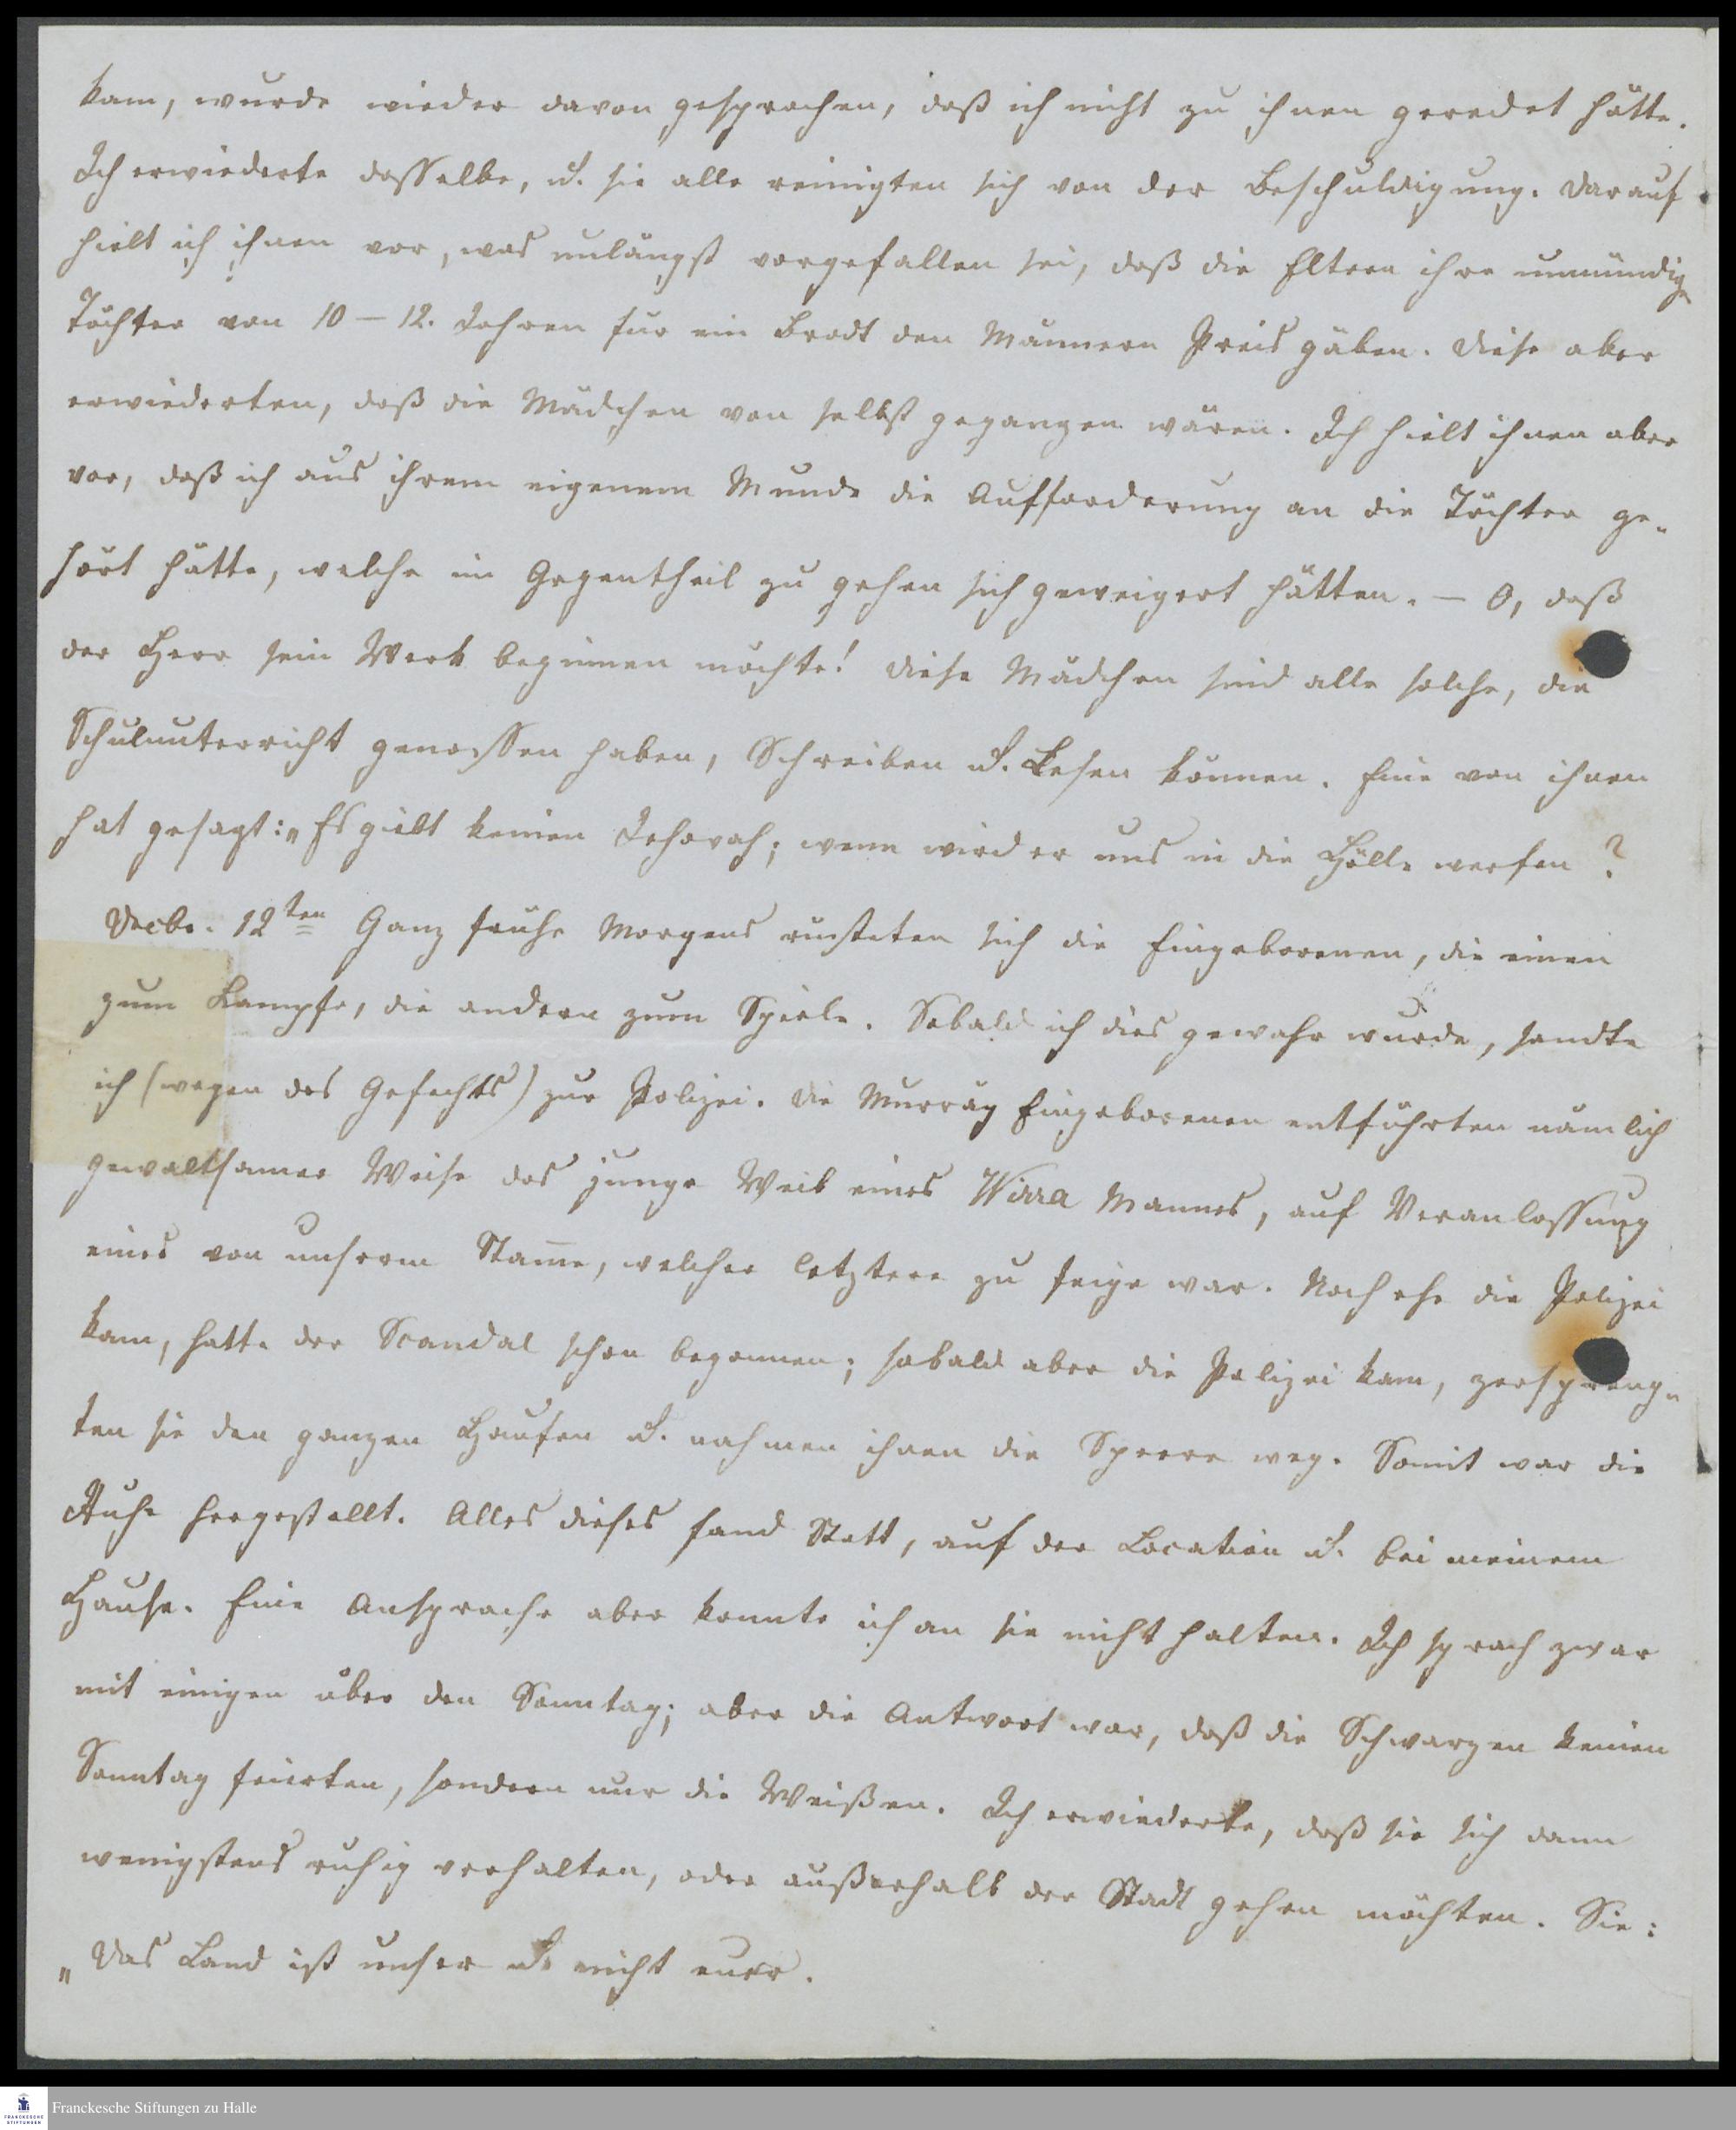 kam, wurde wieder davon gesprochen, daß ich nicht zu ihnen geredet hätte.
Ich erwiederte dasselbe, u. sie alle reinigten sich von der Beschuldigung. Darauf
hielt ich ihnen vor, was unlängst vorgefallen sei, daß die Eltern ihre unmündige
Töchter von 10 – 12. Jahren für ein Brodt den Männern Preis gäben. Diese aber
erwiederten, daß die Mädchen von selbst gegangen wären. Ich hielt ihnen aber
vor, daß ich aus ihrem eigenem Munde die Aufforderung an die Töchter ge-
hört hätte, welche im Gegentheil zu gehen sich geweigert hätten. – O, daß
der Herr sein Werk beginnen möchte! Diese Mädchen sind alle solche, die
Schulunterricht genossen haben, Schreiben u. Lesen können. Eine von ihnen
hat gesagt: „Es giebt keinen Jehovah; wenn wird er uns in die Hölle werfen?
Decbr. 12ten Ganz frühe Morgens rüsteten sich die Eingeborenen, die einen
zum Kampfe, die andern zum Spiele. Sobald ich dies gewahr wurde, sandte
ich (wegen des Gefechts) zur Polizei. Die Murray Eingeborenen entführten nämlich
gewaltsamer Weise das junge Weib eines Wirra Mannes, auf Veranlassung
eines von unserm Stam̅e, welcher letztere zu feige war. Noch ehe die Polizei
kam, hatte der Scandal schon begonnen; sobald aber die Polizei kam, zerspreng-
ten sie den ganzen Haufen u. nahmen ihnen die Speere weg. Somit war die
Ruhe hergestellt. Alles dieses fand Statt, auf der Location u. bei meinem
Hause. Eine Ansprache aber konnte ich an sie nicht halten. Ich sprach zwar
mit einigen über den Sonntag; aber die Antwort war, daß die Schwarzen keinen
Sonntag feierten, sondern nur die Weißen. Ich erwiederte, daß sie sich dann
wenigstens ruhig verhalten, oder außerhalb der Stadt gehen möchten. Sie:
„Das Land ist unser u. nicht euer.
FRANCKESCHE
STIFTUNGEN
Franckesche Stiftungen zu Halle